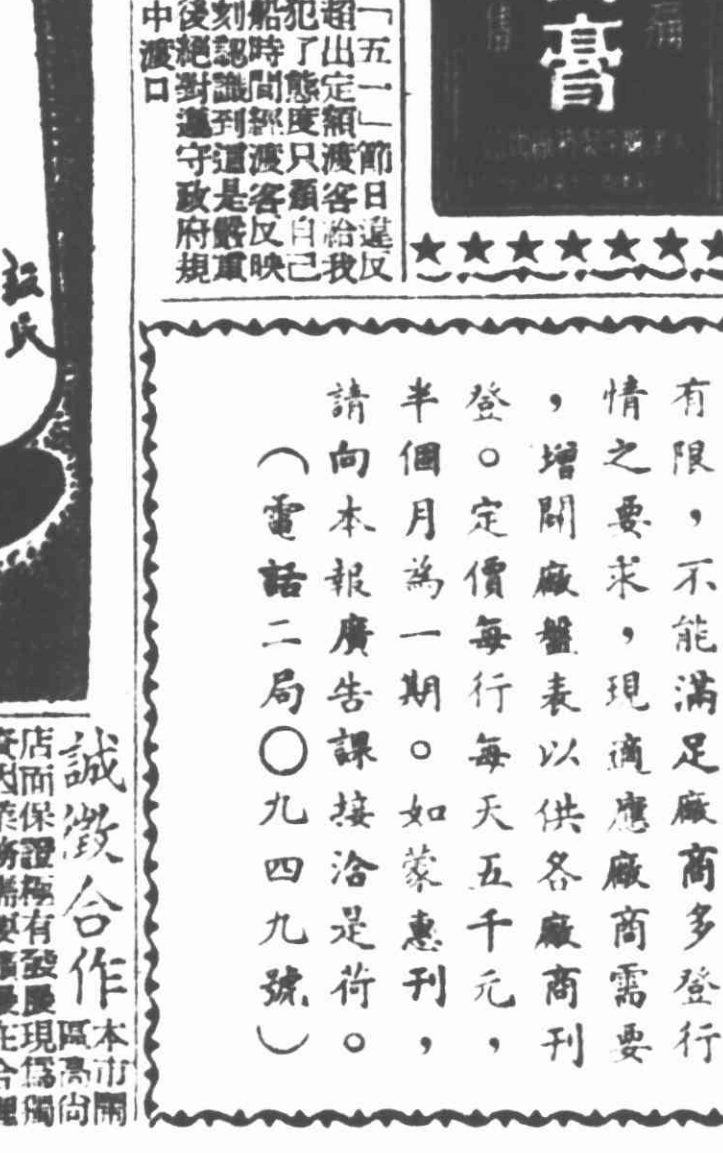 膏
「五一」節日違反
超出定額渡客給我
犯了態度只顧自己
船時間經渡客反映
刻認識到這是嚴重
後絕對遵守政府規
中渡口
有限，不能滿足廠商多登行
情之要求，現適應廠商需要
，增闢廠盤表以供各廠商刊
登。定價每行每天五千元，
半個月為一期。如蒙惠刊，
請向本報廣告課接洽是荷。
（電話二局〇九四九號）
誠徵合作
本市鬧
區高尚
店面保證極有發展現為獨